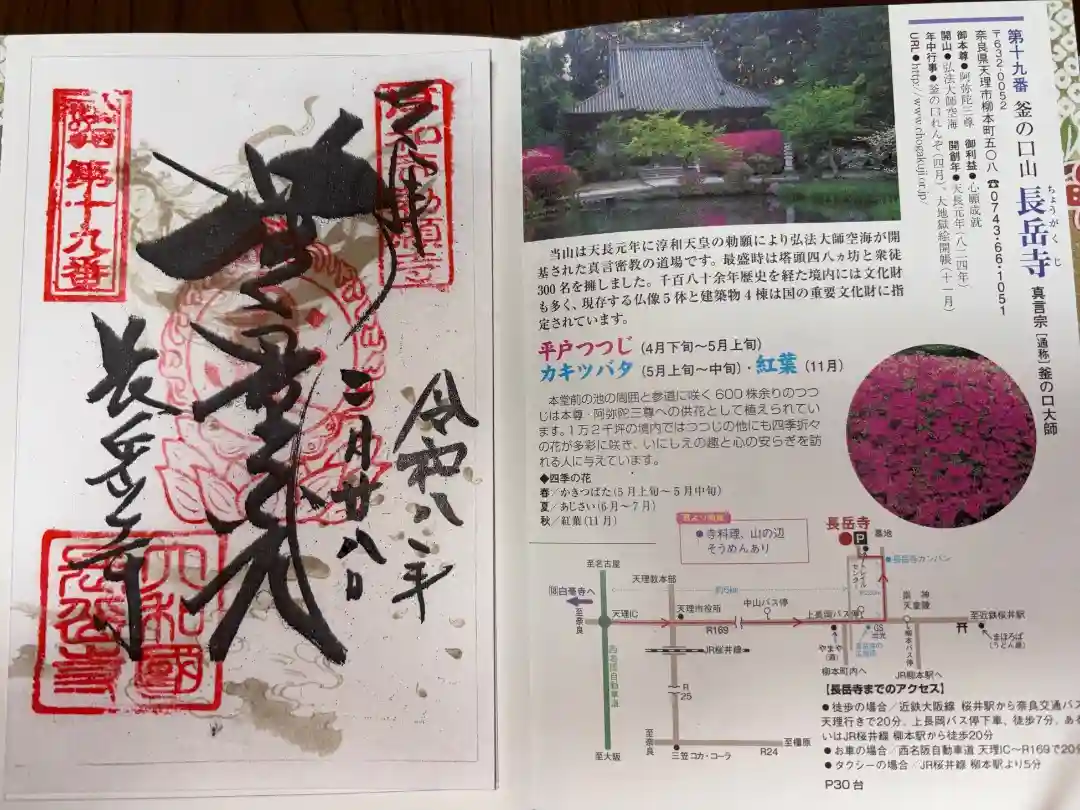 第十九番
令和八年
二月廿八日
長岳寺
第十九番 釜の口山 長岳寺 真言宗 [通称] 釜の口大師
ちょうがくじ
〒632-0052
奈良県天理市柳本町五〇八 ☎0743-66-1051
御本尊●阿弥陀三尊 御利益●心願成就
開山●弘法大師空海 開創年●天長元年(八二四年)
年中行事●釜の口れんぞ(四月)、大地獄絵開帳(十一月)
URL●http://www.chogakuji.or.jp/
当山は天長元年に淳和天皇の勅願により弘法大師空海が開
基された真言密教の道場です。最盛時は塔頭四八ヵ坊と衆徒
300名を擁しました。千百八十余年歴史を経た境内には文化財
も多く、現存する仏像5体と建築物4棟は国の重要文化財に指
定されています。
平戸つつじ(4月下旬〜5月上旬)
カキツバタ(5月上旬〜中旬)・紅葉(11月)
本堂前の池の周囲と参道に咲く600株余りのつつ
じは本尊・阿弥陀三尊への供花として植えられてい
ます。1万2千坪の境内ではつつじの他にも四季折々
の花が多彩に咲き、いにしえの趣と心の安らぎを訪
れる人に与えています。
◆四季の花
春/かきつばた(5月上旬〜5月中旬)
夏/あじさい(6月〜7月)
秋/紅葉(11月)
●寺料理、山の辺
そうめんあり
長岳寺
P
墓地
トレイルセンター
長岳寺カンバン
至名古屋
天理教本部
回白毫寺へ
至奈良
天理IC
天理市役所
中山バス停
上長岡バス停
R169
崇神天皇陵
至近鉄桜井駅
GS
やまや(酒)
柳本バス停
まほろば(うどん屋)
JR桜井線
柳本町内へ
JR柳本駅へ
西名阪自動車道
R25
至大阪
至奈良
三笠コカ・コーラ
R24
至橿原
【長岳寺までのアクセス】
●徒歩の場合/近鉄大阪線 桜井駅から奈良交通バス
天理行きで20分、上長岡バス停下車、徒歩7分、ある
いはJR桜井線 柳本駅から徒歩20分
●お車の場合/西名阪自動車道 天理IC〜R169で20分
●タクシーの場合/JR桜井線 柳本駅より5分
P30台